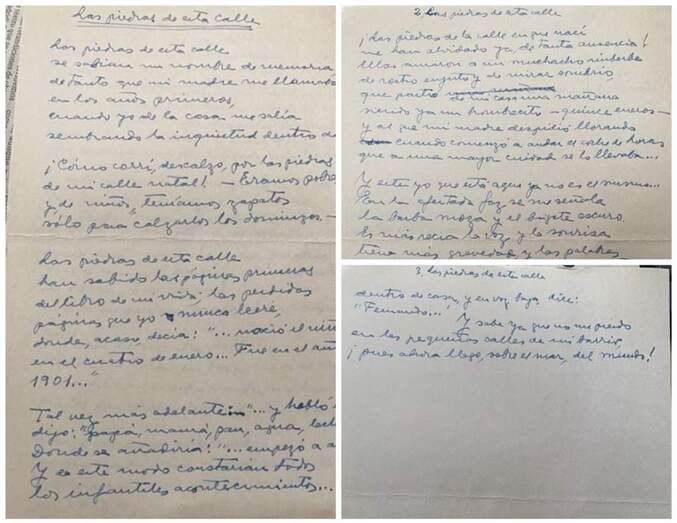 Las piedras de esta calle
Las piedras de esta calle
se sabían mi nombre de memoria
de tanto que mi madre me llamaba
en los años primeros,
cuando yo de la casa me salía
sembrando la inquietud dentro d
¡Cómo corrí, descalzo, por las piedras
de mi calle natal! – Éramos pobre
y, de niños, teníamos zapatos
sólo para calzarlos los domingos. –
Las piedras de esta calle
han sabido las páginas primeras
del libro de mi vida: las perdidas
páginas que yo nunca leeré,
donde, acaso, decía: "... nació el niño
en el cuatro de enero... Fue en el añ
1901..."
Tal vez más adelante "... y habló
dijo: "papá, mamá, pan, agua, lech
Donde se añadiría: "... empezó a a
Y de este modo constarían todos
los infantiles acontecimientos...
2, Las piedras de esta calle
¡Las piedras de la calle en que nací
me han olvidado ya, de tanta ausencia!
Ellas amaron a un muchacho imberbe
de rostro enjuto y de mirar sombrío
que partió de mi casa una mañana
siendo ya un hombrecito – quince eneros –
y al que mi madre despidió llorando
cuando comenzó a andar el coche de horas
que a una mayor ciudad se lo llevaba...
Y este yo que está aquí ya no es el mismo...
En la afeitada faz se me señala
la barba moza y el bigote oscuro.
Es más recia la voz y la sonrisa
tiene más gravedad y las palabras
3, Las piedras de esta calle
dentro de casa, y en voz baja, dice:
"Fernando..." Y sabe ya que no me pierdo
en las pequeñas calles de mi barrio,
¡pues ahora llego, sobre el mar, del mundo!